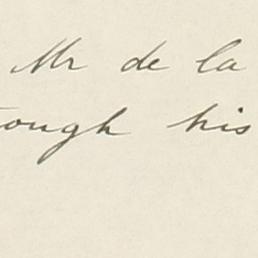 Mr de la
ough his